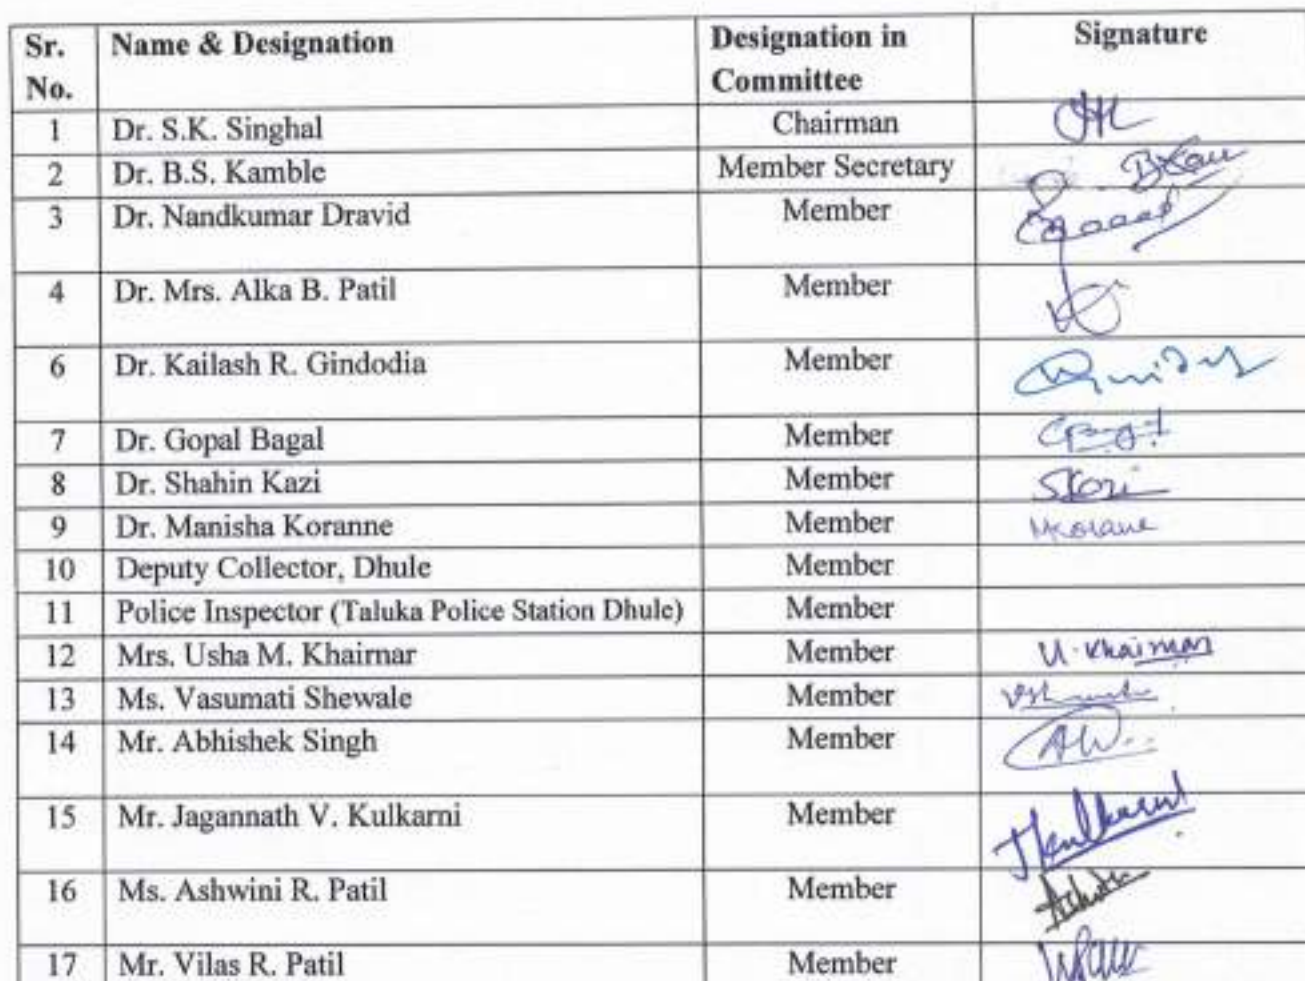 Sr. No. Name & Designation Designation in Committee Signature
1 Dr. S.K. Singhal Chairman
2 Dr. B.S. Kamble Member Secretary
3 Dr. Nandkumar Dravid Member
4 Dr. Mrs. Alka B. Patil Member
6 Dr. Kailash R. Gindodia Member
7 Dr. Gopal Bagal Member
8 Dr. Shahin Kazi Member SKazi
9 Dr. Manisha Koranne Member
10 Deputy Collector, Dhule Member
11 Police Inspector (Taluka Police Station Dhule) Member
12 Mrs. Usha M. Khairnar Member U. Khairnar
13 Ms. Vasumati Shewale Member
14 Mr. Abhishek Singh Member
15 Mr. Jagannath V. Kulkarni Member JKulkarni
16 Ms. Ashwini R. Patil Member
17 Mr. Vilas R. Patil Member